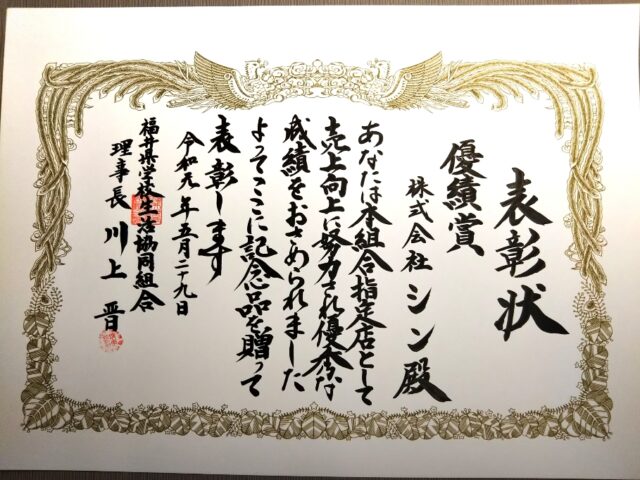 表彰状
優績賞
株式会社 シン殿
あなたは本組合指定店として
売上向上に努力され優秀な
成績をおさめられました
よってここに記念品を贈って
表彰します
令和元年五月二十九日
福井県学校生活協同組合
理事長 川上 晋